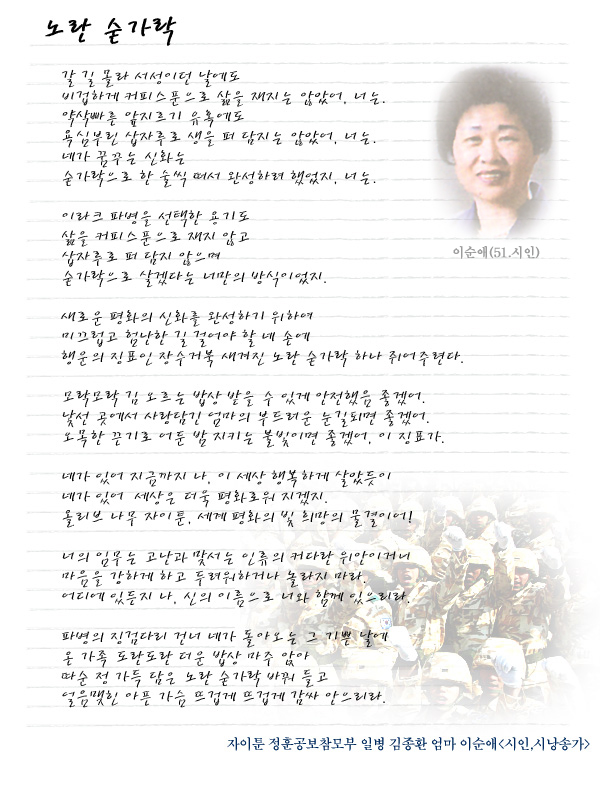 노란 숟가락
갈 길 몰라 서성이던 날에도
비겁하게 커피스푼으로 삶을 재지는 않았어, 너는.
약삭빠른 앞지르기 유혹에도
욕심부린 삽자루로 생을 퍼 담지는 않았어, 너는.
네가 꿈꾸는 신화는
숟가락으로 한 술씩 떠서 완성하려 했었지, 너는.
이라크 파병을 선택한 용기도
삶을 커피스푼으로 재지 않고
삽자루로 퍼 담지 않으며
숟가락으로 살겠다는 너만의 방식이었지.
새로운 평화의 신화를 완성하기 위하여
미끄럽고 험난한 길 걸어야 할 네 손에
행운의 징표인 장수거북 새겨진 노란 숟가락 하나 쥐어주련다.
모락모락 김 오르는 밥상 받을 수 있게 안전했음 좋겠어.
낯선 곳에서 사랑담긴 엄마의 부드러운 눈길되면 좋겠어.
오목한 끈기로 어둔 밤 지키는 불빛이면 좋겠어, 이 징표가.
네가 있어 지금까지 나, 이 세상 행복하게 살았듯이
네가 있어 세상은 더욱 평화로워 지겠지.
올리브 나무 자이툰, 세계 평화의 빛 희망의 물결이어!
너의 임무는 고난과 맞서는 인류의 커다란 위안이거니
마음을 강하게 하고 두려워하거나 놀라지 마라.
어디에 있든지 나, 신의 이름으로 너와 함께 있으리라.
파병의 징검다리 건너 네가 돌아오는 그 기쁜 날에
온 가족 도란도란 더운 밥상 마주 앉아
따순 정 가득 담은 노란 숟가락 바꿔 들고
얼음맺힌 아픈 가슴 뜨겁게 뜨겁게 감싸 안으리라.
이순애(51.시인)
자이툰 정훈공보참모부 일병 김종환 엄마 이순애<시인,시낭송가>